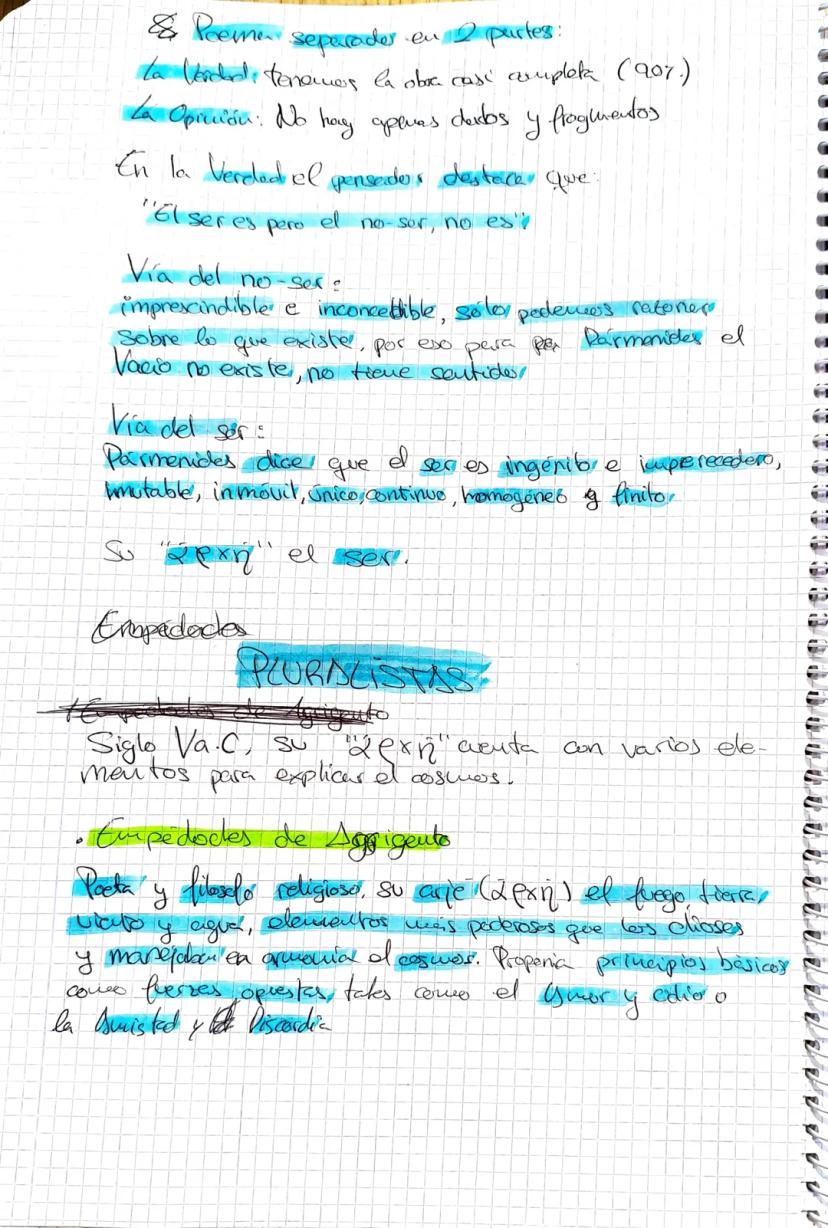 Poema separados en 2 partes:
La Verdad: tenemos la obra casi completa (90%)
La Opinión: No hay apenas datos y fragmentos
En la Verdad el pensador destaca que:
"El ser es pero el no-ser, no es"
Vía del no-ser:
imprescindible e inconcebible, sólo podemos
sobre lo que existe, por eso para Parmenides el
Vacío no existe, no tiene sentido
Vía del ser:
Parmenides dice que el ser es ingénito e imperecedero,
inmutable, inmóvil, único, continuo, homogéneo y finito
Su "ἀρχή" el ser.
Empedocles
PLURALISTAS
Empedocles de Agrigento
Siglo V a.C, su "ἀρχή" cuenta con varios ele-
mentos para explicar el cosmos.
· Empédocles de Agrigento
Poeta y filosofo religioso, su arjé (ἀρχή) el fuego, tierra,
viento y agua, elementos más poderosos que los dioses
y manejaban en armonia el cosmos. Proponia principios básicos
como fuerzas opuestas, tales como el Amor y odio o
la Amistad y Discordia